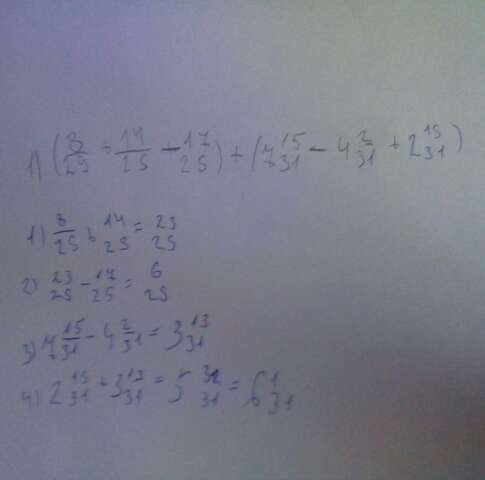 1) (8/25 + 14/25 - 17/25) + (7 15/31 - 4 2/31 + 2 19/31)
1) 8/25 + 14/25 = 23/25
2) 23/25 - 17/25 = 6/25
3) 7 15/31 - 4 2/31 = 3 13/31
4) 2 19/31 + 3 13/31 = 5 32/31 = 6 1/31